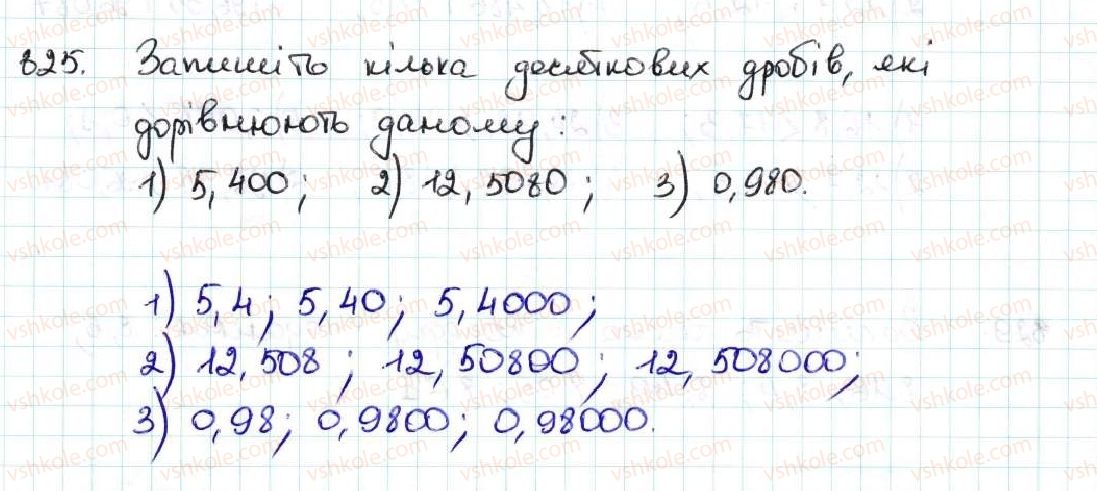 825. Запишіть кілька десяткових дробів, які
дорівнюють даному:
1) 5,400; 2) 12,5080; 3) 0,980.
1) 5,4; 5,40; 5,4000;
2) 12,508; 12,50800; 12,508000;
3) 0,98; 0,9800; 0,98000.
vshkole.com